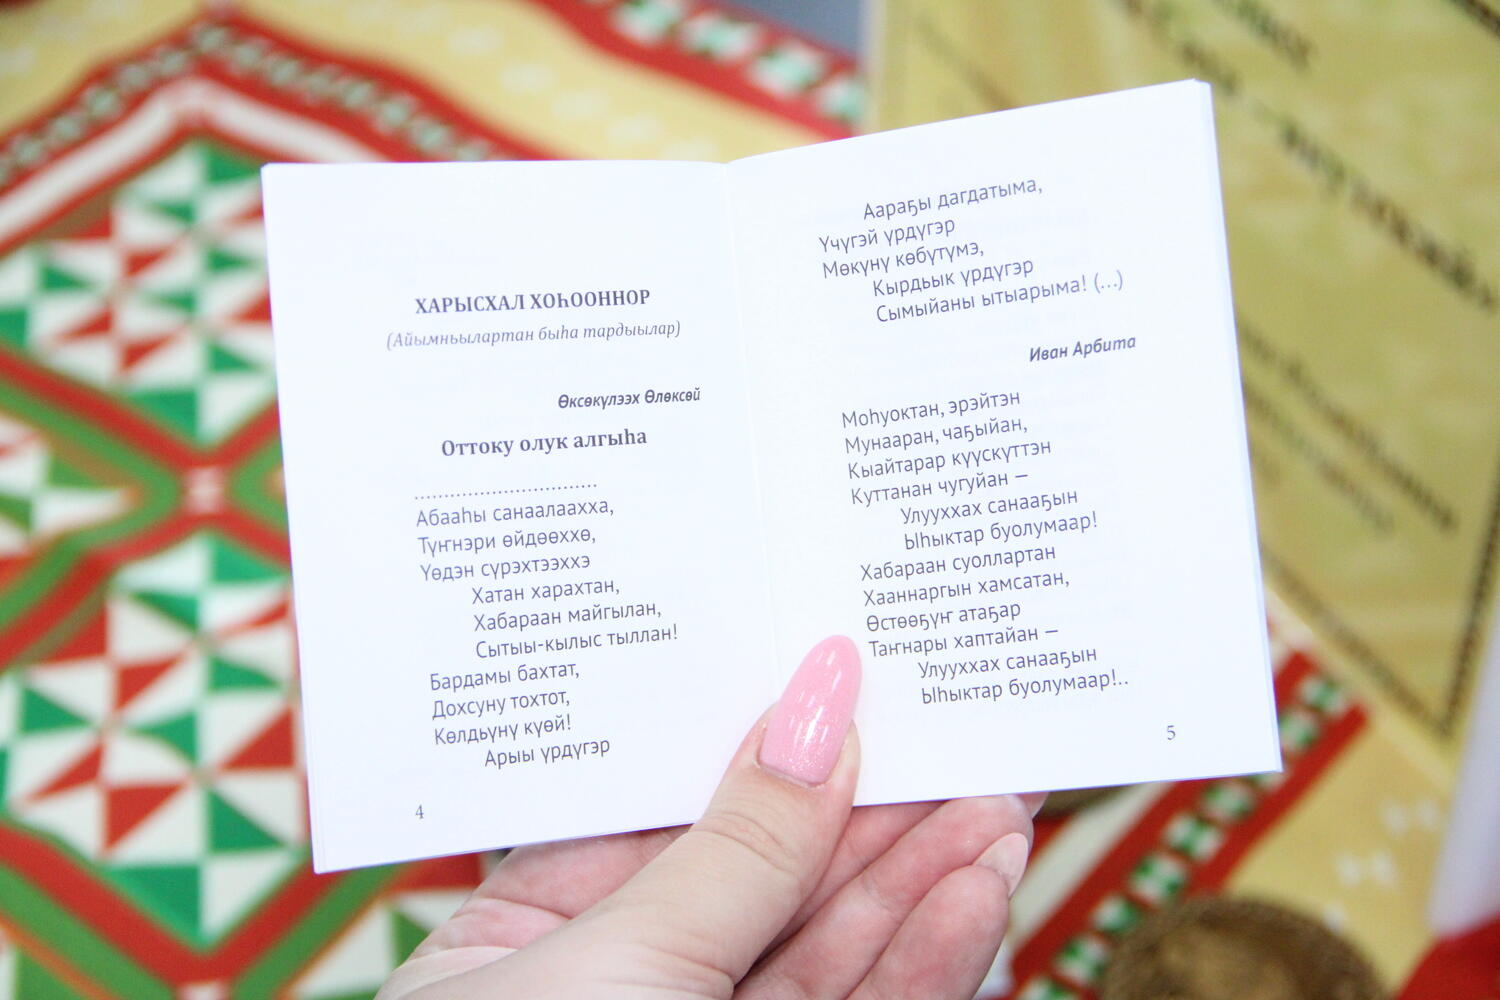 ХАРЫСХАЛ ХОҺООННОР
(Айымньылартан быһа тардыылар)
Өксөкүлээх Өлөксөй
Оттоку олук алгыһа
...............................
Абааһы санаалаахха,
Түҥнэри өйдөөххө,
Үөдэн сүрэхтээххэ
Хатан харахтан,
Хабараан майгылан,
Сытыы-кылыс тыллан!
Бардамы бахтат,
Дохсуну тохтот,
Көлдьүнү күөй!
Арыы үрдүгэр
4
Аараҕы дагдатыма,
Үчүгэй үрдүгэр
Мөкүнү көбүтүмэ,
Кырдьык үрдүгэр
Сымыйаны ытыарыма! (...)
Иван Арбита
Моһуоктан, эрэйтэн
Мунааран, чаҕыйан,
Кыайтарар күүскүттэн
Куттанан чугуйан —
Улууххах санааҕын
Ыһыктар буолумаар!
Хабараан суоллартан
Хааннаргын хамсатан,
Өстөөҕүҥ атаҕар
Таҥнары хаптайан —
Улууххах санааҕын
Ыһыктар буолумаар!..
5